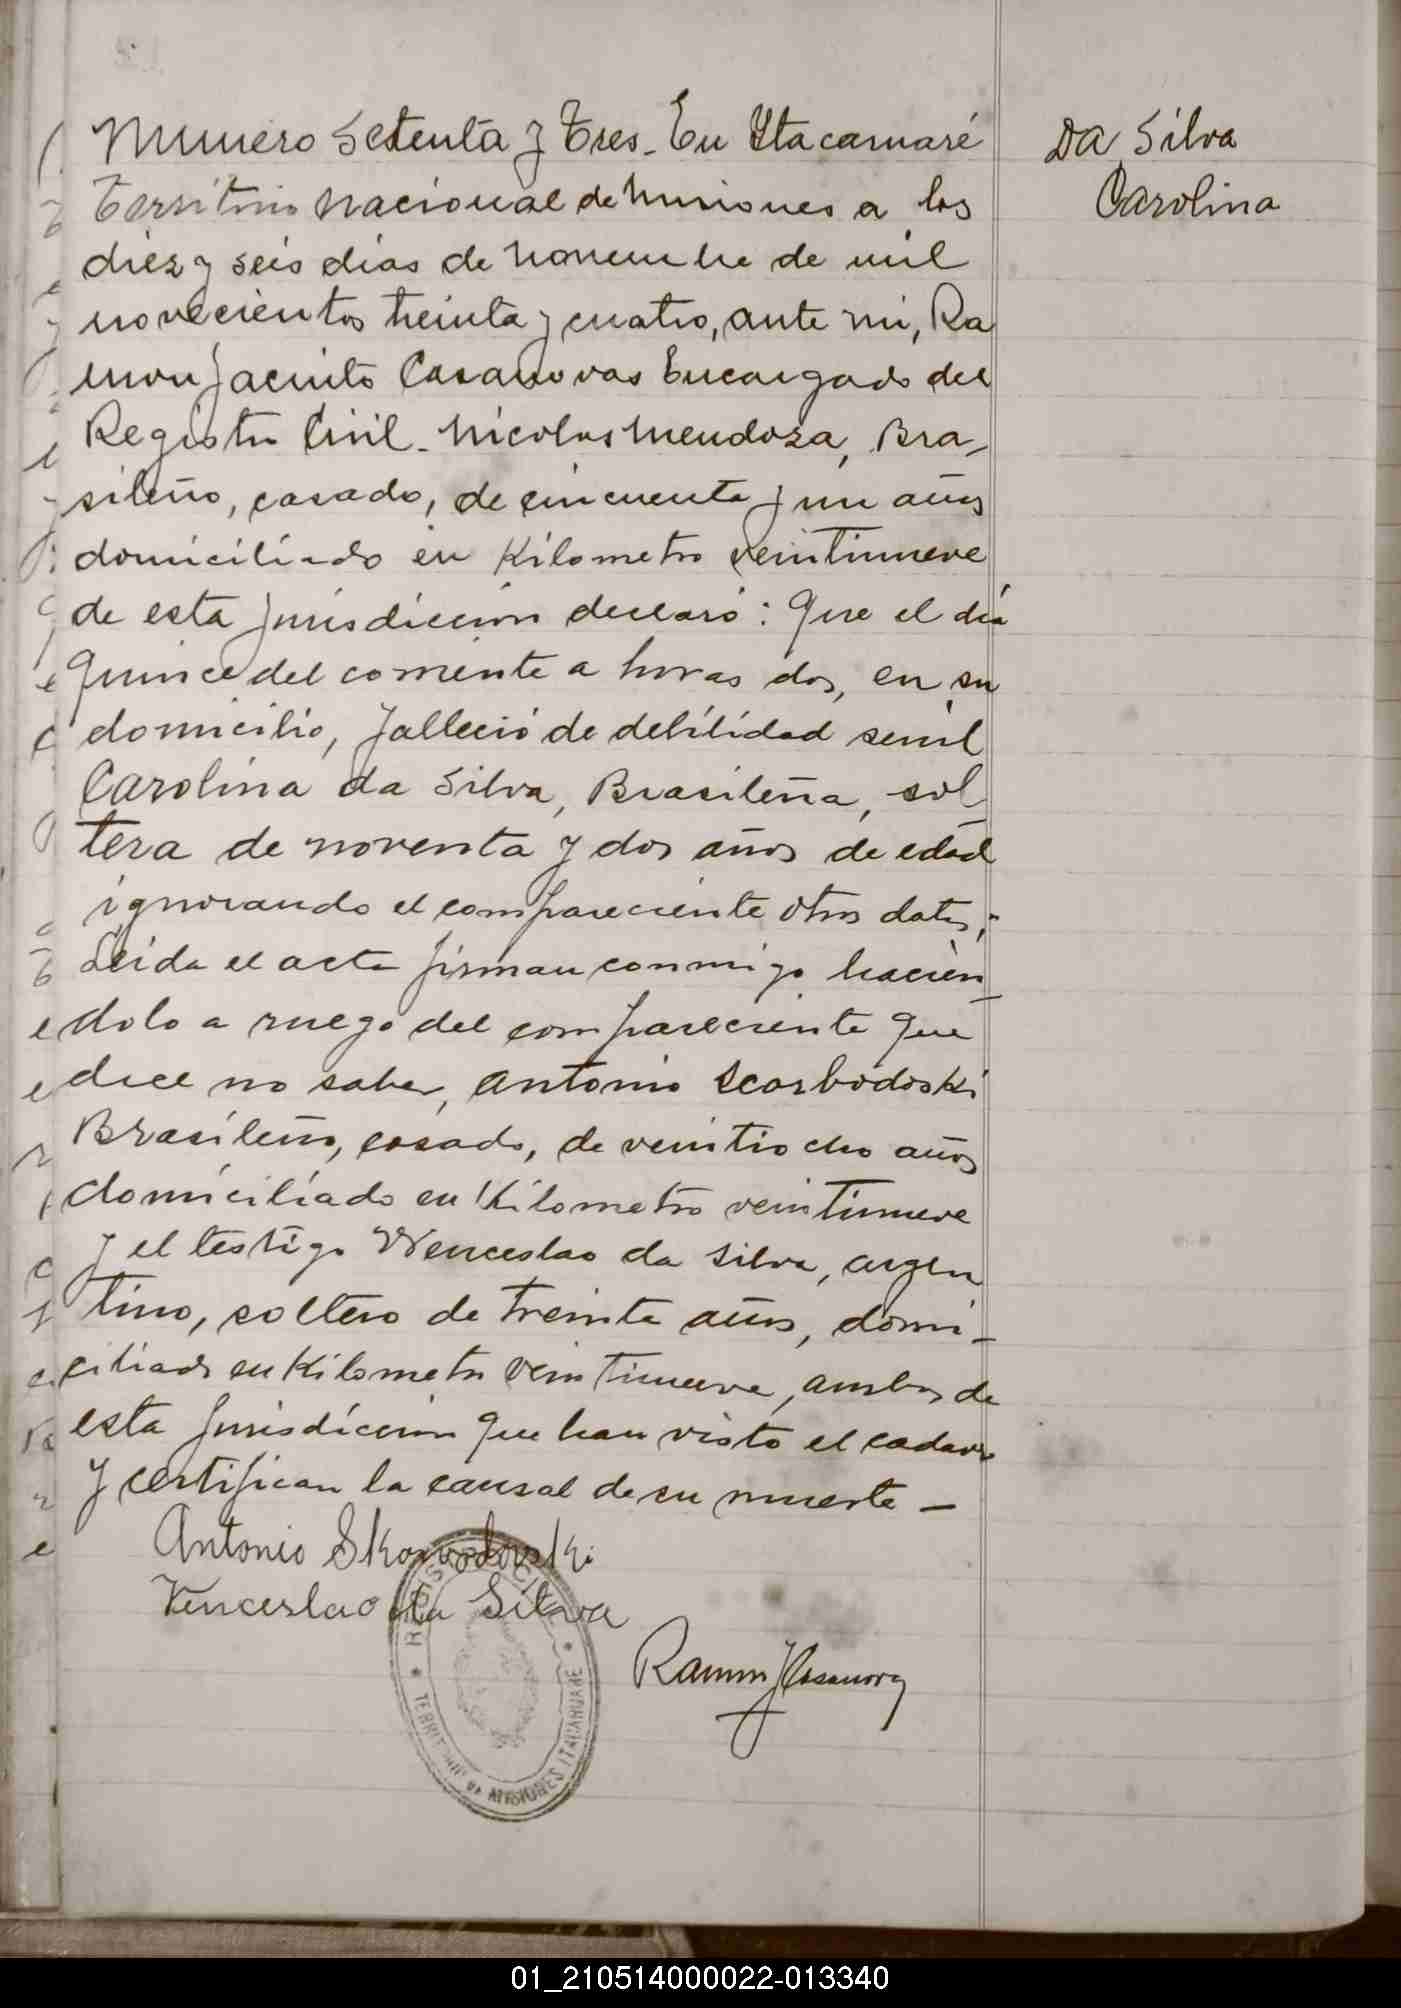 Numero Setenta y Tres. En Itacaruaré
Territorio Nacional de Misiones a los
diez y seis dias de Noviembre de mil
novecientos treinta y cuatro, ante mi, Ra
mon Jacinto Casanovas Encargado del
Registro Civil. Nicolas Mendoza, Bra-
sileño, casado, de cincuenta y un años
domiciliado en Kilometro veintinueve
de esta Jurisdiccion declaró: Que el dia
quince del corriente a horas dos, en su
domicilio, falleció de debilidad senil
Carolina da Silva, Brasileña, sol
tera de noventa y dos años de edad
ignorando el compareciente otros datos,
Leida el acta firman conmigo hacien-
dolo a ruego del compareciente que
dice no saber, Antonio Scorbodoski
Brasileño, casado, de veintiocho años
domiciliado en Kilometro veintinueve
y el testigo Wenceslao da Silva, argen
tino, soltero de treinta años, domi-
ciliado en Kilometro veintinueve, ambos de
esta Jurisdiccion que han visto el cadaver
y certifican la causal de su muerte —
Antonio Skorvodovski
Venceslao da Silva
Ramon J Casanovas
REGISTRO CIVIL
TERRITORIO DE MISIONES ITACARUARE
Da Silva
Carolina
01_210514000022-013340